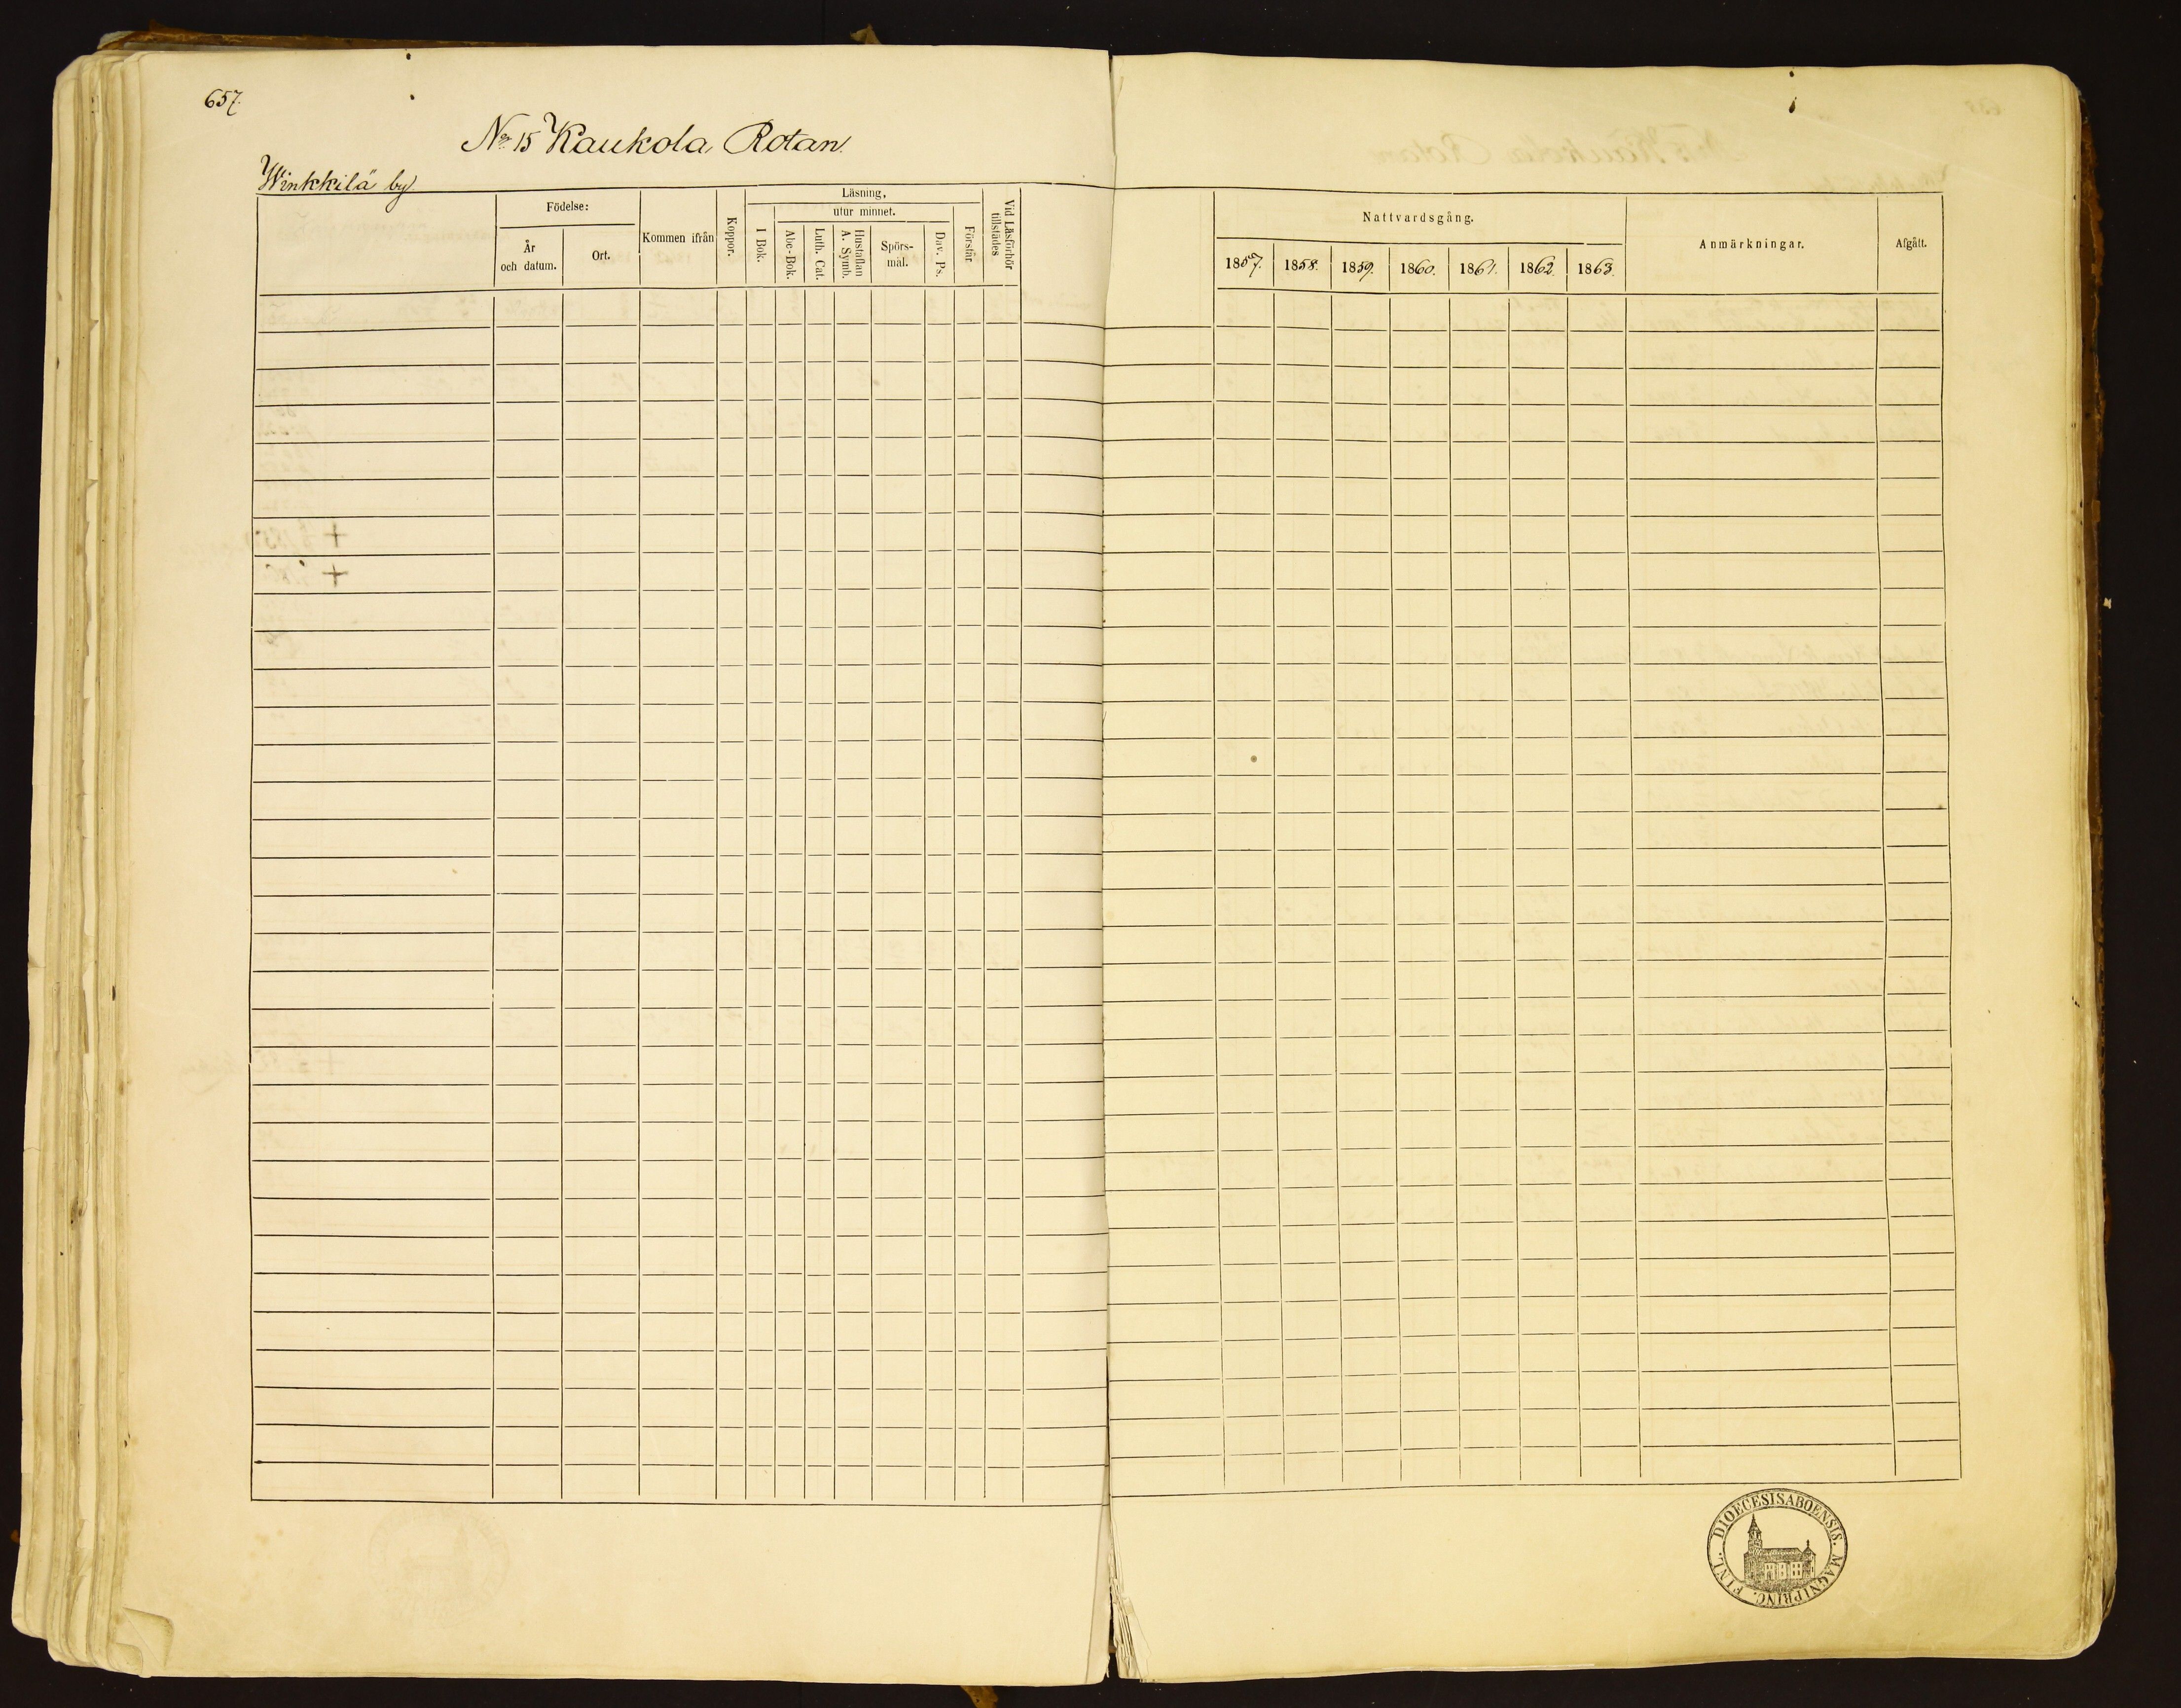 657.
No 15 Kaukola Rotan.
Winkkilä by
Födelse:
År och datum.
Ort.
Kommen ifrån
Koppor.
Läsning,
I Bok.
utur minnet.
Abc-Bok.
Luth. Cat.
Hustaflan A. Symb.
Spörsmål.
Dav. Ps.
Förstår
Vid Läsförhör tillstädes
Nattvardsgång.
1857. 1858. 1859. 1860. 1861. 1862. 1863.
Anmärkningar.
Afgått.
DIOECESIS ABOENSIS. MAGNI PRINC. FINL.